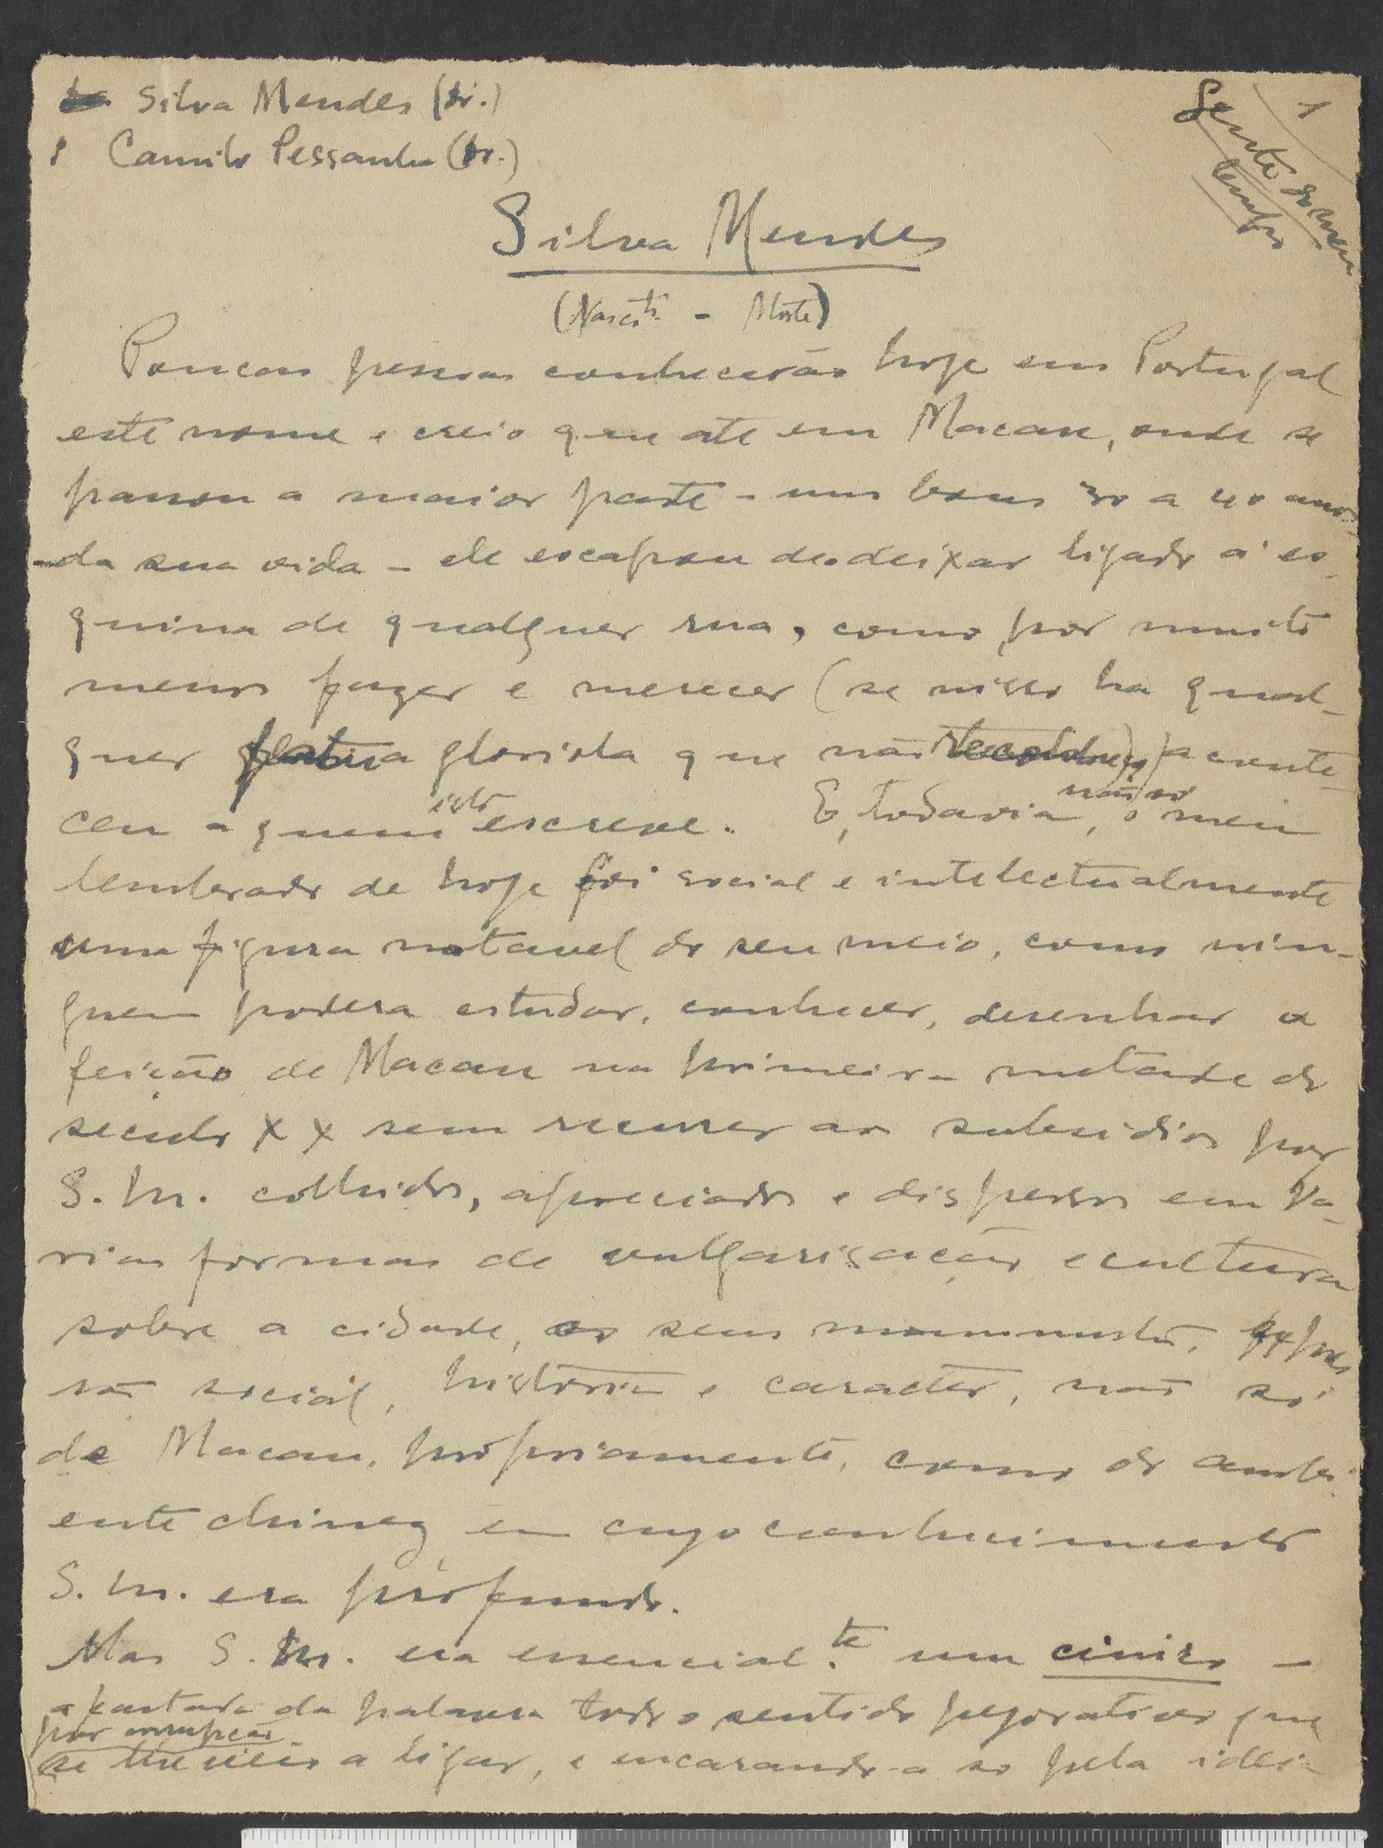 Silva Mendes (Dr.)
Camilo Pessanha (Dr.)
1
Gente do meu
tempo
Silva Mendes
(Nascto. - Morte)
Poucas pessoas conhecerão hoje em Portugal
este nome e creio que até em Macau, onde se
passou a maior parte - uns bons 30 a 40 anos
- da sua vida - ele escapou de deixar ligado á es-
quina de qualquer rua, como, por muito
menos fazer e merecer (se nisso ha qual-
quer gloriola que não aconte-
ceu a quem isto escreve. E, todavia, não só o meu
lembrado de hoje foi social e intelectualmente
uma figura notavel do seu meio, como nin-
guem poderá estudar, conhecer, desenhar a
feição de Macau na primeira metade do
seculo XX sem recorrer ao subsidios por
S. M. colhidos, apreciados e dispersos em va-
rias formas de vulgarisação e cultura
sobre a cidade, os seus monumentos, expres
são social, historia e caracter, não só
de Macau, propriamente, como do ambi-
ente chinez em cujo conhecimento
S. M. era profundo.
Mas S. M. era essencial.te um cinico -
apartada da palavra todo o sentido pejorativo que
por corrupção
se lhe veio a ligar, e encarando-a só pela idei-